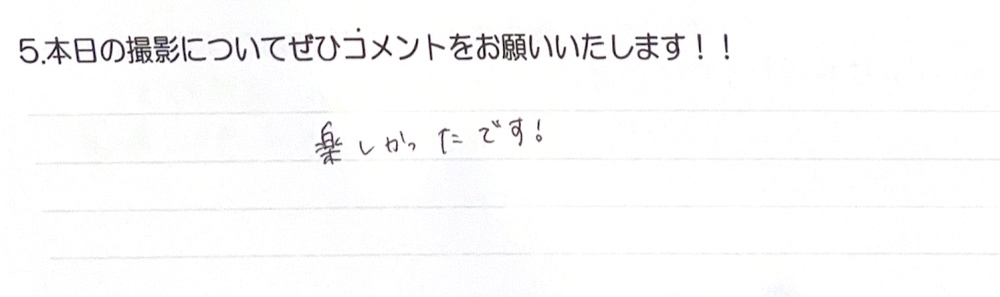 5.本日の撮影についてぜひコメントをお願いいたします！！
楽しかったです！